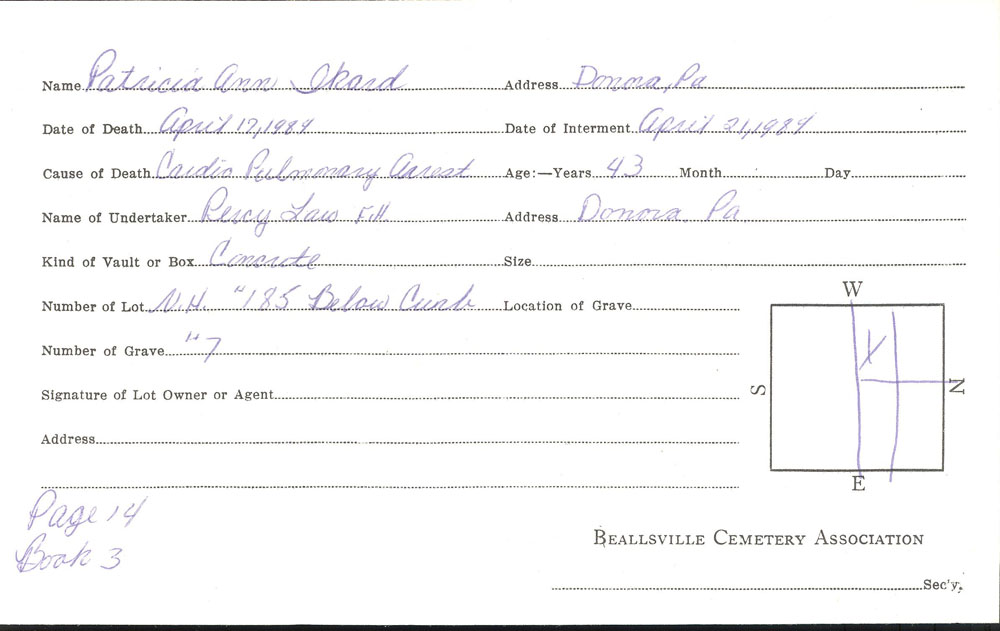 Name Patricia Ann Ikard Address Donora, Pa
Date of Death April 17, 1984 Date of Interment April 21, 1984
Cause of Death Cardio Pulmonary Arrest Age:—Years 43 Month Day
Name of Undertaker Percy Law F.H Address Donora Pa
Kind of Vault or Box Concrete Size
Number of Lot N.H. "185 Below Curb Location of Grave
Number of Grave "7
Signature of Lot Owner or Agent
Address
W
X
S
N
E
Page 14
Book 3
BEALLSVILLE CEMETERY ASSOCIATION
Sec'y.